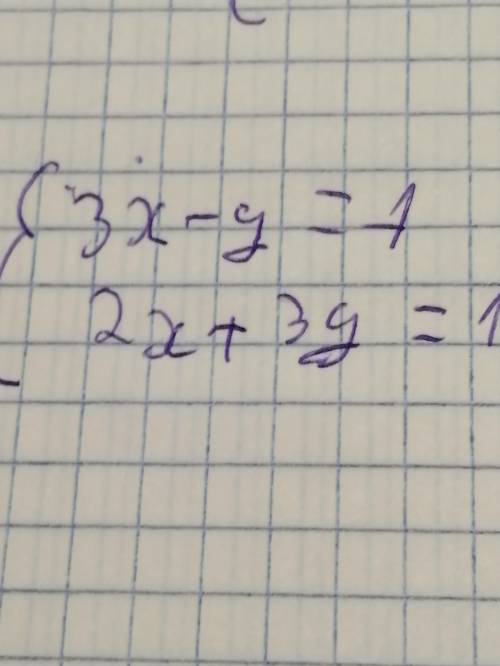 3x - y = 1
2x + 3y = 1